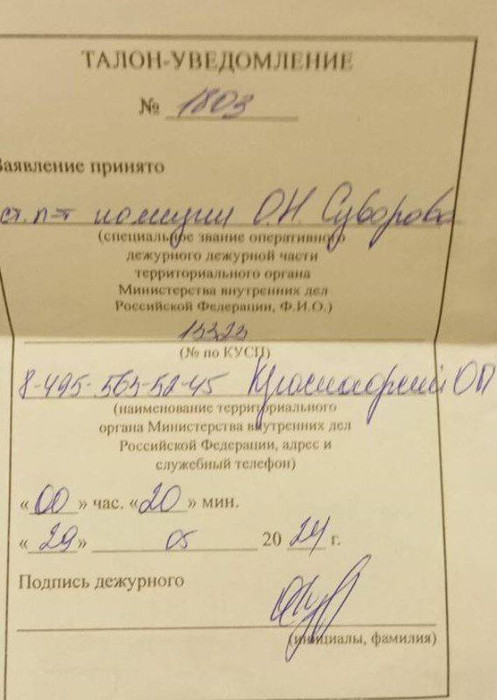 ТАЛОН-УВЕДОМЛЕНИЕ
№ 1803
Заявление принято
ст. л-т полиции О.Н. Суворова
(специальное звание оперативного
дежурного дежурной части
территориального органа
Министерства внутренних дел
Российской Федерации, Ф.И.О.)
13323
(№ по КУСП)
8-495-563-52-45 Красногорский ОП
(наименование территориального
органа Министерства внутренних дел
Российской Федерации, адрес и
служебный телефон)
«00» час. «20» мин.
«29» 05 2024 г.
Подпись дежурного
(инициалы, фамилия)